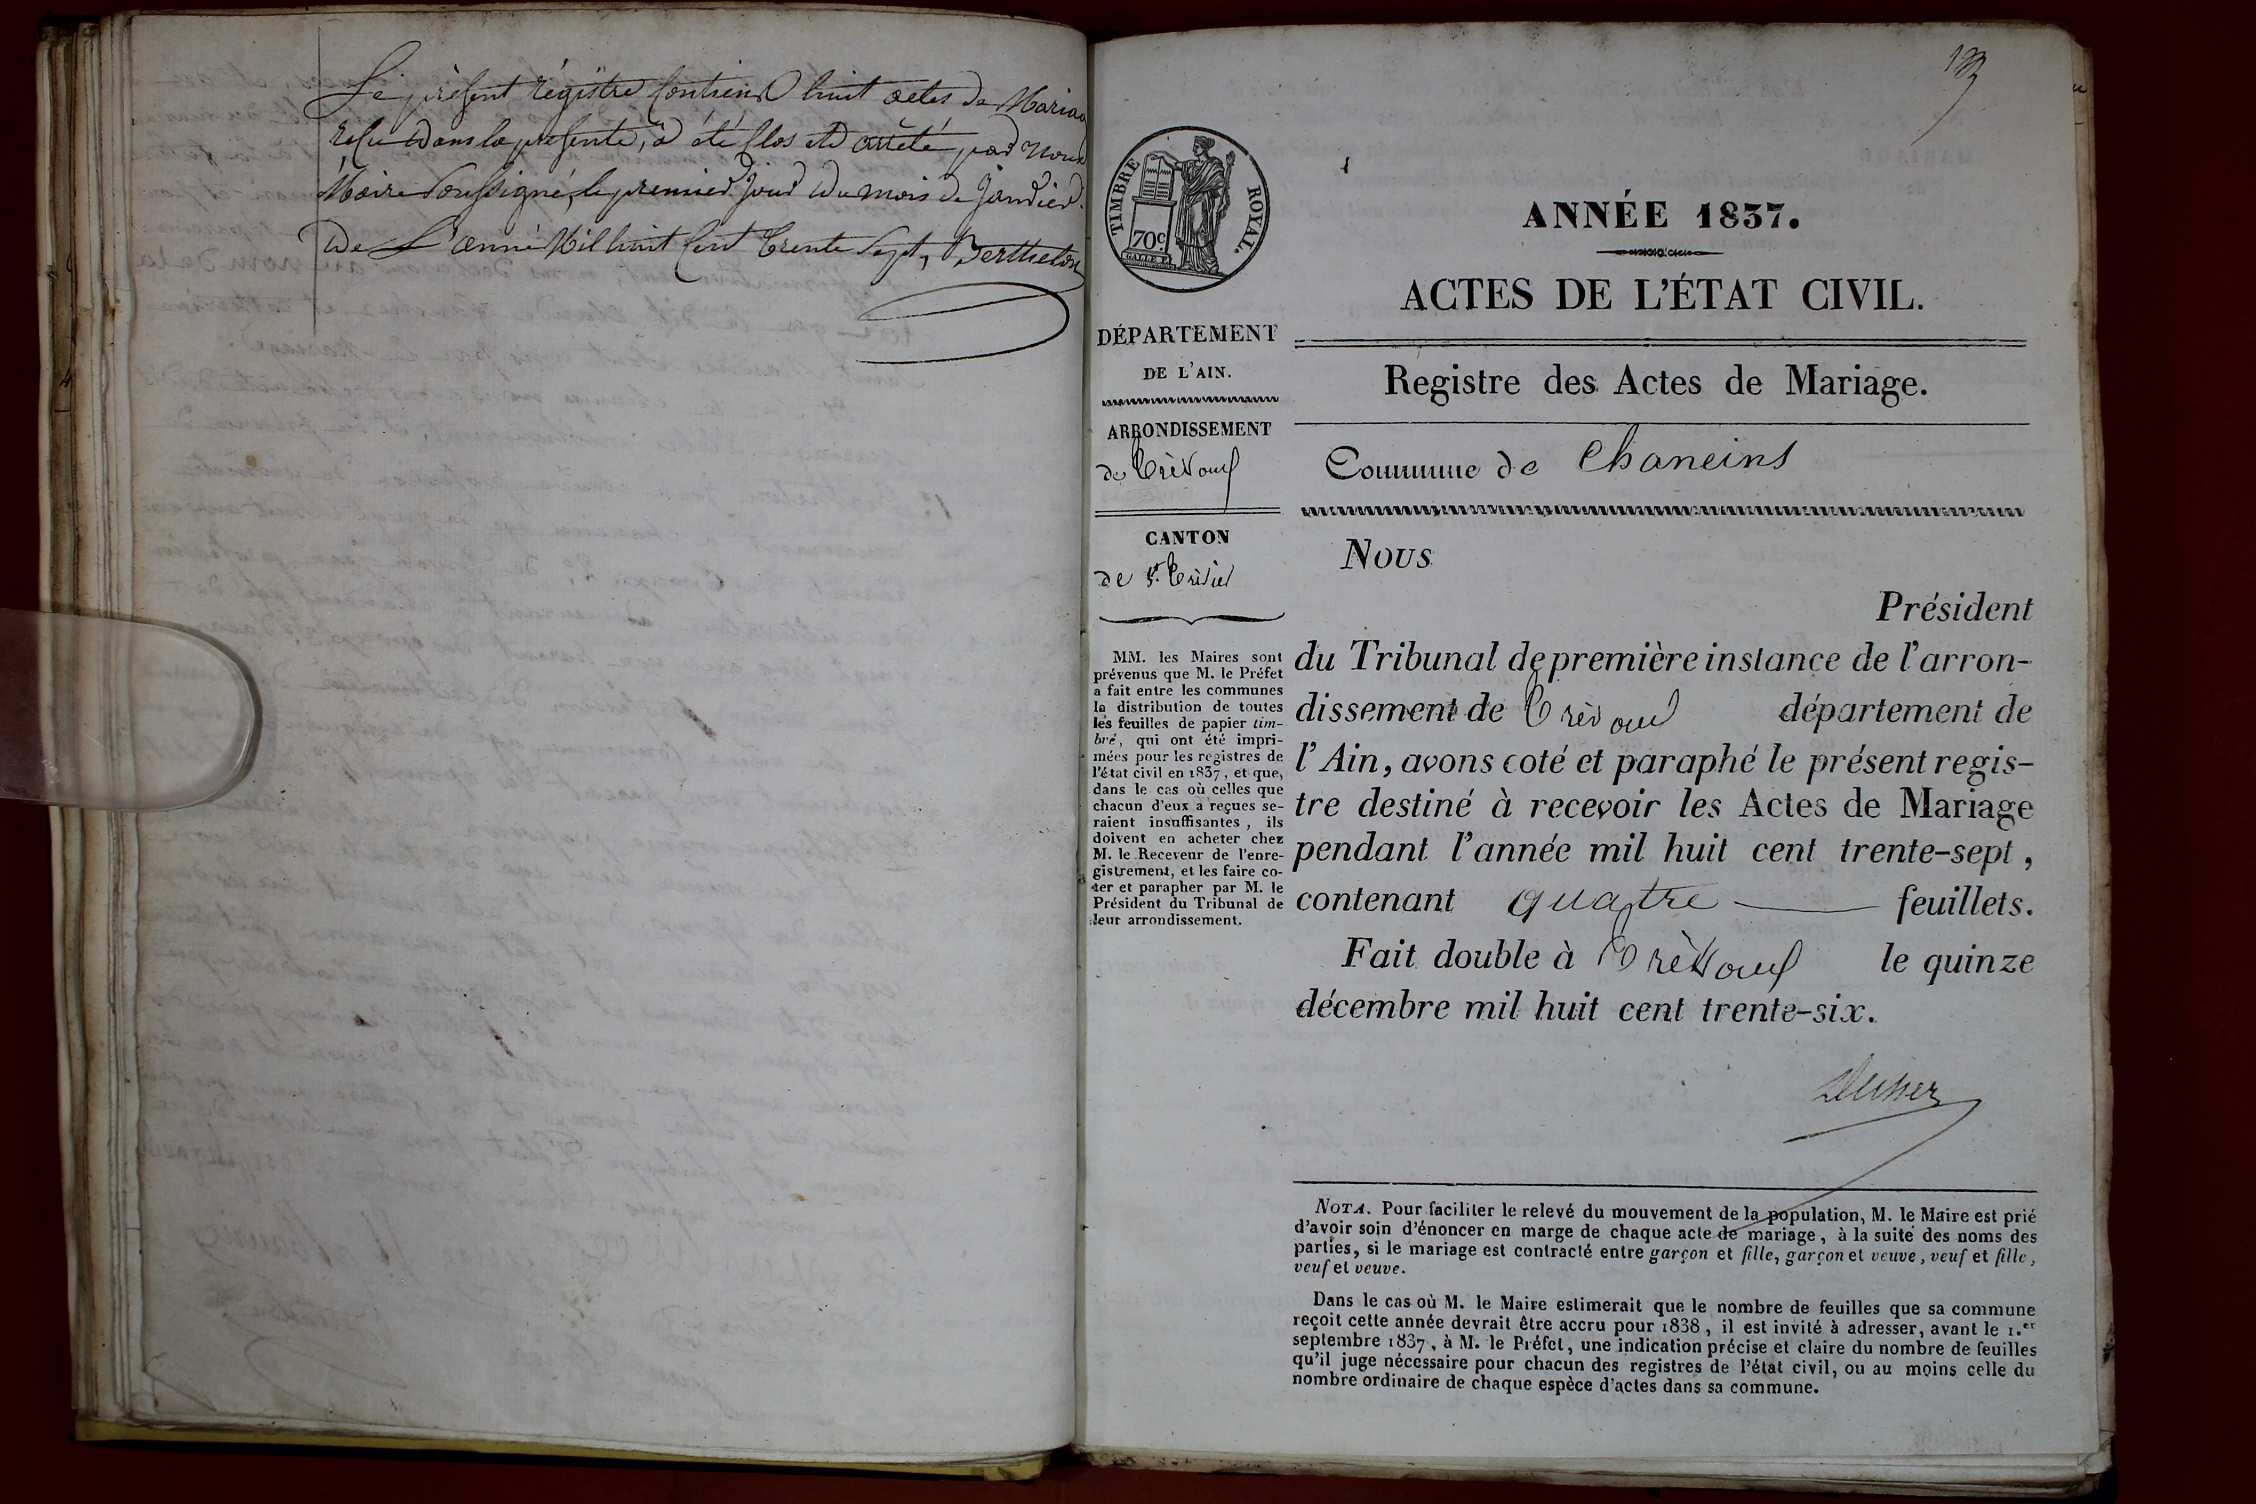 Le présent régistre Contient huit actes de Mariag
reçu dans la présente, à été Clos et arrêté, par Nous
Maire Soussigné, le premier Jour du mois de Janvier.
de L'année Mil huit Cent Trente Sept, Berthelon
TIMBRE ROYAL.
70c.
ANNÉE 1837.
ACTES DE L'ÉTAT CIVIL.
DÉPARTEMENT
DE L'AIN.
ARRONDISSEMENT
de Trévoux
CANTON
de St. Trivier
MM. les Maires sont
prévenus que M. le Préfet
a fait entre les communes
la distribution de toutes
les feuilles de papier tim-
bré, qui ont été impri-
mées pour les registres de
l'état civil en 1837, et que,
dans le cas où celles que
chacun d'eux a reçues se-
raient insuffisantes, ils
doivent en acheter chez
M. le Receveur de l'enre-
gistrement, et les faire co-
ter et parapher par M. le
Président du Tribunal de
leur arrondissement.
Registre des Actes de Mariage.
Commune de Chaneins
Nous
Président
du Tribunal de première instance de l'arron-
dissement de Trévoux département de
l'Ain, avons coté et paraphé le présent regis-
tre destiné à recevoir les Actes de Mariage
pendant l'année mil huit cent trente-sept,
contenant quatre feuillets.
Fait double à Trévoux le quinze
décembre mil huit cent trente-six.
NOTA. Pour faciliter le relevé du mouvement de la population, M. le Maire est prié
d'avoir soin d'énoncer en marge de chaque acte de mariage, à la suite des noms des
parties, si le mariage est contracté entre garçon et fille, garçon et veuve, veuf et fille,
veuf et veuve.
Dans le cas où M. le Maire estimerait que le nombre de feuilles que sa commune
reçoit cette année devrait être accru pour 1838, il est invité à adresser, avant le 1.er
septembre 1837, à M. le Préfet, une indication précise et claire du nombre de feuilles
qu'il juge nécessaire pour chacun des registres de l'état civil, ou au moins celle du
nombre ordinaire de chaque espèce d'actes dans sa commune.